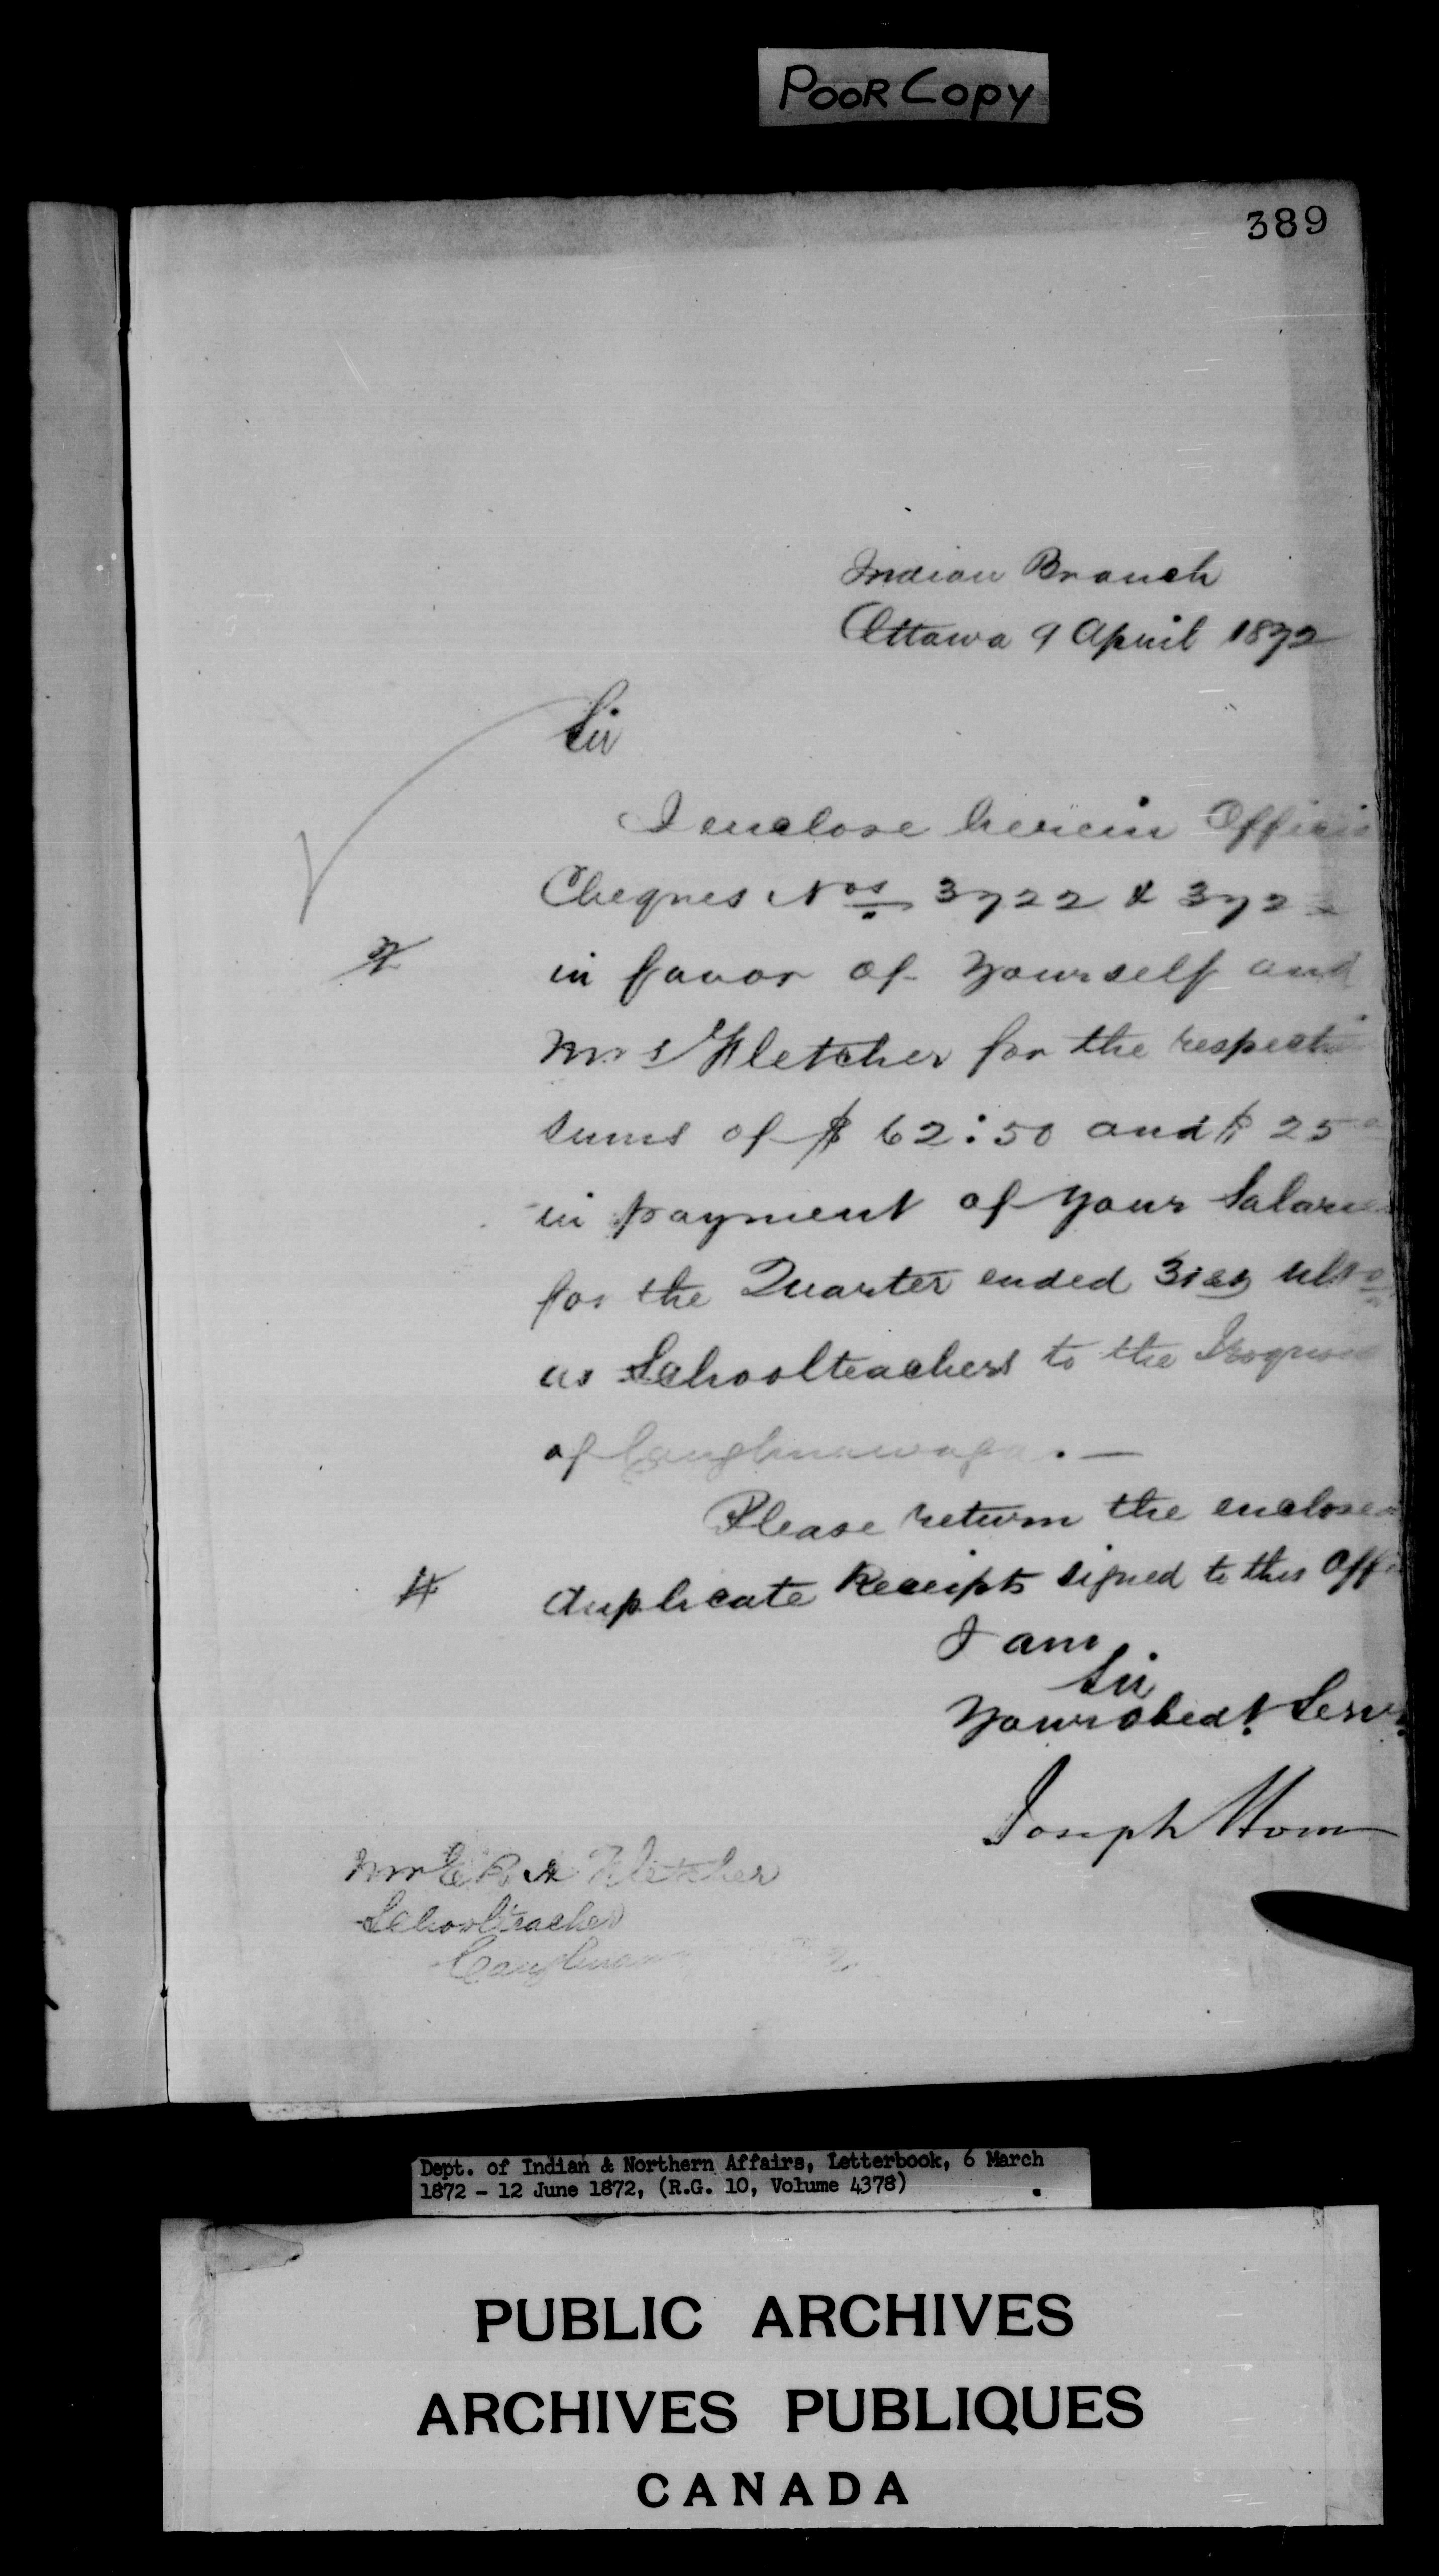 POOR COPY
389
Indian Branch
Ottawa 9 April 1872
Sir
I enclose herein Offici
Cheques Nos 3722 & 372
in favor of yourself and
Mrs Fletcher for the respecti
sums of $ 62:50 and $ 25
in payment of your Salarie
for the Quarter ended 31st ulto
as Schoolteachers to the Iroquois
of Caughnawaga. —
Please return the enclosed
duplicate Receipts signed to this Offi
I am
Sir
Your obedt. Serv
Joseph Howe
Mr E. R. A Fletcher
Schoolteacher
Dept. of Indian & Northern Affairs, Letterbook, 6 March
1872 - 12 June 1872, (R.G. 10, Volume 4378)
PUBLIC ARCHIVES
ARCHIVES PUBLIQUES
CANADA